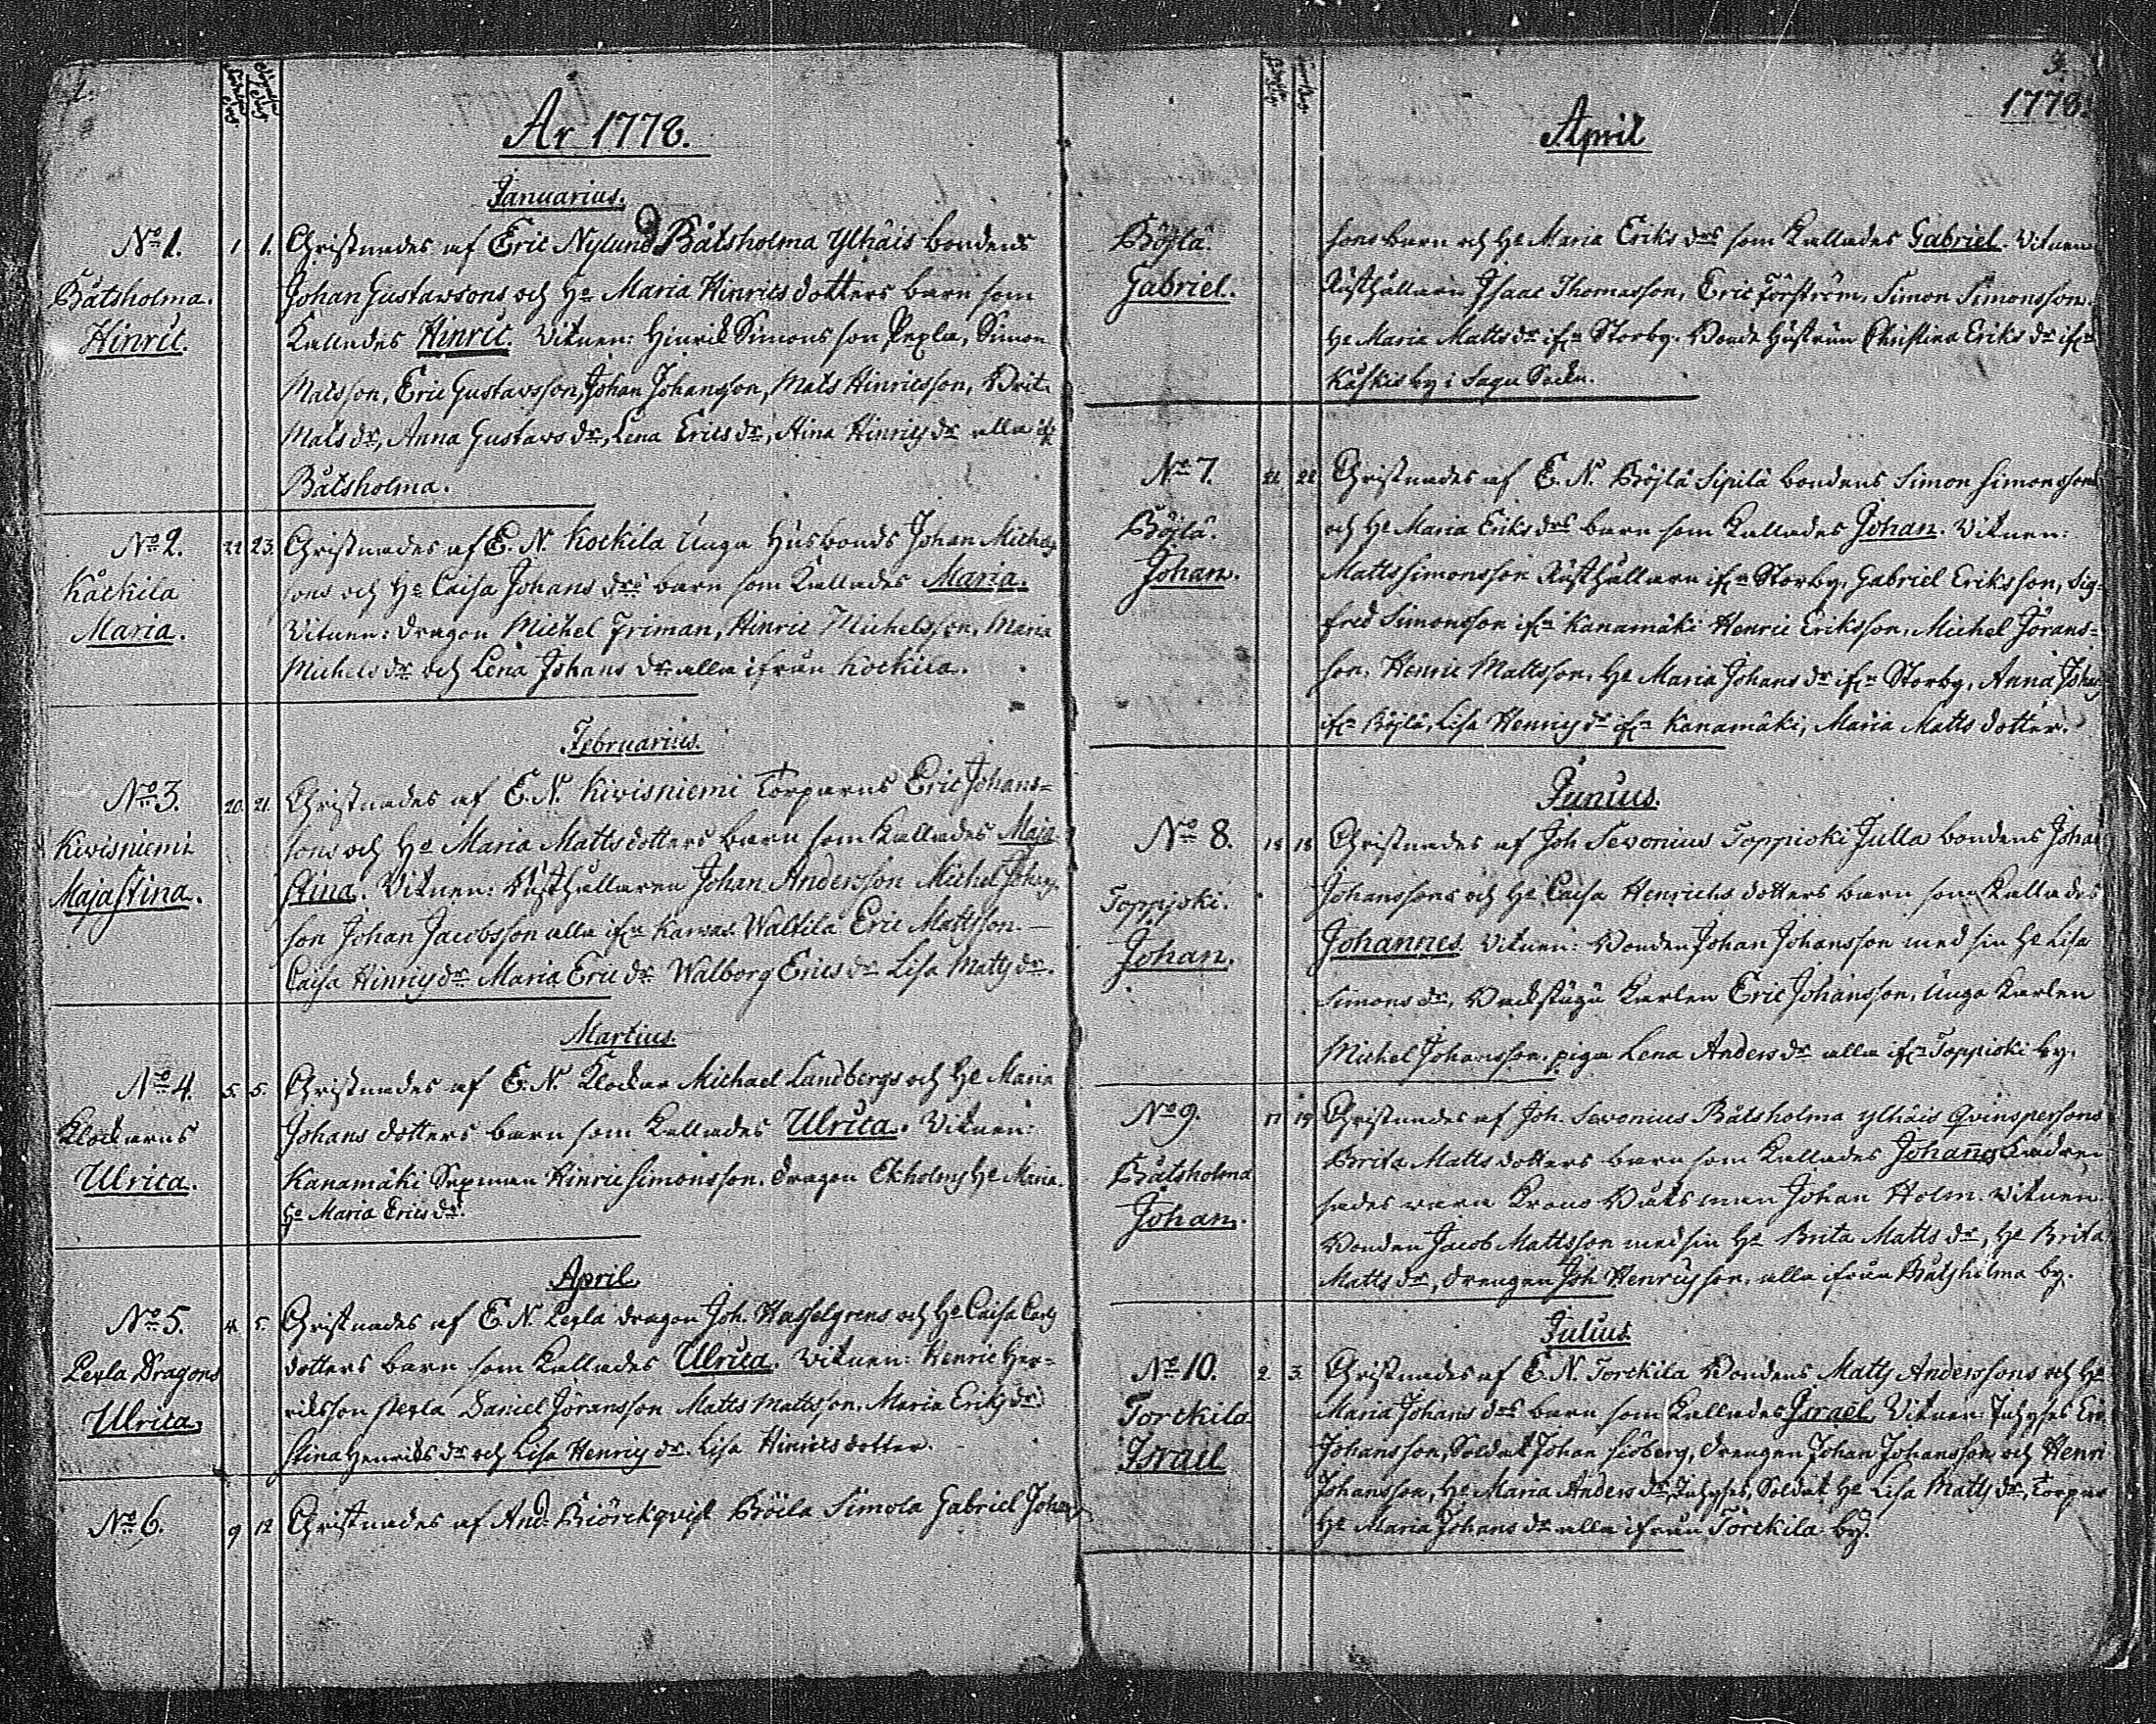 År 1778.
Januarius.
No 1. 1. 1. Christnades af Eric Nylund Båtsholma Ylhäis bondens
Båtsholma. Johan Gustavsons och He Maria Hinricsdotters barn som
Hinric. kallades Hinric. Vitnen: Hinrik Simonsson Pexla, Simon
Matsson, Eric Gustavsson, Johan Johansson, Mats Hinricsson, Brita
Mats dr, Anna Gustavs dr, Lena Erics dr, Stina Hinrics dr alla ifr
Båtsholma.
No 2. 22 23. Christnades af E. N. Kockila Unga Husbonds Johan Michels
Kåckila sons och He Caisa Johans drs barn som kallades Maria.
Maria. Vitnen: dragon Michel Friman, Hinric Michelsson, Maria
Michels dr och Lena Johans dr alla ifrån Kockila.
Februarius.
No 3. 20. 21. Christnades af E. N. Kivisniemi Torparns Eric Johans=
Kivisniemi sons och He Maria Mattsdotters barn som kallades Maja
Maja Stina. Stina. Vitnen: Rusthållaren Johan Andersson Michel Johans
son Johan Jacobsson alla ifrn Karvas. Waltila Eric Mattsson.
Caisa Hinrics dr Maria Eric dr Walborg Erics dr Lisa Matts dr.
Martius.
No 4. 5. 5. Christnades af E. N. Klockar Michael Landbergs och He Maria
Klockarns Johans dotters barn som kallades Ulrica. Vitnen:
Ulrica. Kanamäki Sexman Hinric Simonsson. dragon Ekholms He Maria.
He Maria Erics dr.
April.
No 5. 4. 5. Christnades af E. N. Pexla dragon Joh. Hasselgrens och He Caisa Carls
Pexla Dragons dotters barn som kallades Ulrica. Vitnen: Henric Hen=
Ulrica. riksson Pexla Daniel Jöransson Matts Mattsson. Maria Eriks dr
Stina Henriks dr och Lisa Henrics dr. Lisa Hinricsdotter.
No 6. 9 12 Christnades af And. Biörckqvist Böila Simola Gabriel Johans
3.
1778.
April
Böjlä. sons barn och He Maria Eriks drs som kallades Gabriel. Vitnen
Gabriel. Rusthållarn Isaac Thomasson, Eric Förström, Simon Simonsson.
He Maria Matts dr ifrn Storby. Bonde Hustrun Christina Eriks dr ifrn
Kaskis by i Sagu Sockn.
No 7. 21 22 Christnades af E. N. Böjlä Sipilä bondens Simon Simonssons
Böjlä. och He Maria Eriks drs barn som kallades Johan. Vitnen:
Johan. Matts Simonsson Rusthållarn ifrn Storby, Gabriel Eriksson, Sig=
fred Simonsson ifrn Kanamäki Henric Eriksson, Michel Jörans=
son, Henric Mattsson, He Maria Johans dr ifrn Storby, Anna Johans
ifrn Böjlä, Lisa Henrics dr ifrn Kanamäki, Maria Matts dotter.
Junius.
No 8. 18 18 Christnades af Joh Sevonius Toppioki Julla bondens Johan
Toppjoki. Johanssons och He Caisa Henrichs dotters barn som kallades
Johan. Johannes. Vitnen: Bonden Johan Johansson med sin He Lisa
Simons dr, Backstugu karlen Eric Johansson, Unga karlen
Michel Johansson, piga Lena Anders dr alla ifrn Toppioki by.
No 9. 17 19 Christnades af Joh. Sevonius Båtsholma Ylhäis Qvinspersons
Båtsholma Brita Matts dotters barn som kallades Johannes
Johan. vara Krono Båtsman Johan Holm. Vitnen
Bonden Jacob Mattsson med sin He Brita Matts dr, He Brita
Matts dr, drengen Joh Henricsson, alla ifrån Båtsholma by.
Julius.
No 10. 2 3. Christnades af E. N. Torckila Bondens Matts Anderssons och He
Torckila Maria Johans drs barn som kallades Israel. Vitnen: Inhyses Eric
Israel Johansson, Soldat Johan Siöberg, drengen Johan Johansson och Henric
Johansson, He Maria Anders dr, Inhyses, Soldat He Lisa Matts dr, Torpar
He Maria Johans dr alla ifrån Torckila by.